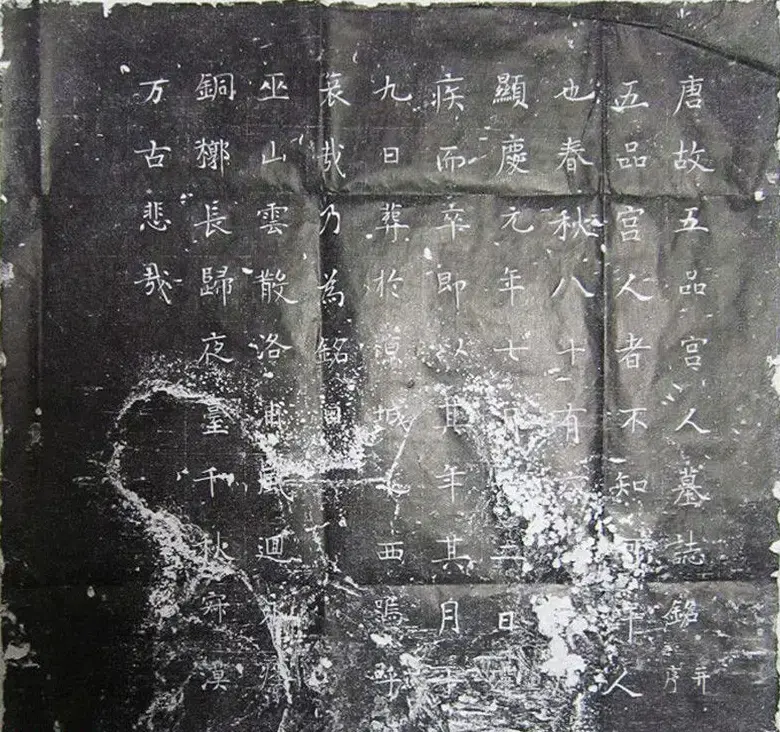 唐故五品宫人墓誌銘并序
五品宫人者不知何許人
也春秋八十有
顯慶元年七月二日
疾而卒即以其年其月十
九日葬於涼城西嗚呼
哀哉乃為銘曰
巫山雲散洛浦風迴
銅槨長歸夜臺千秋寂漠
万古悲哉